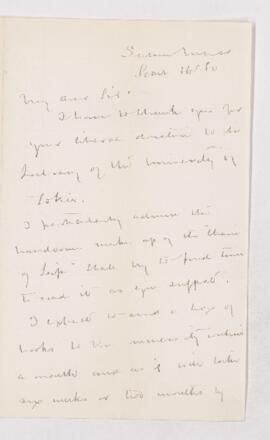 Sept 16th 80
My dear Sir:
I have to thank you for
your liberal donation to the
Library of the University of
Tokio.
I particularly admire the
handsome make up of the
of Life" Shall try to find time
to read it as you suggest.
I expect to send a box of
books to the University within
a month and as it will take
six weeks or two months by